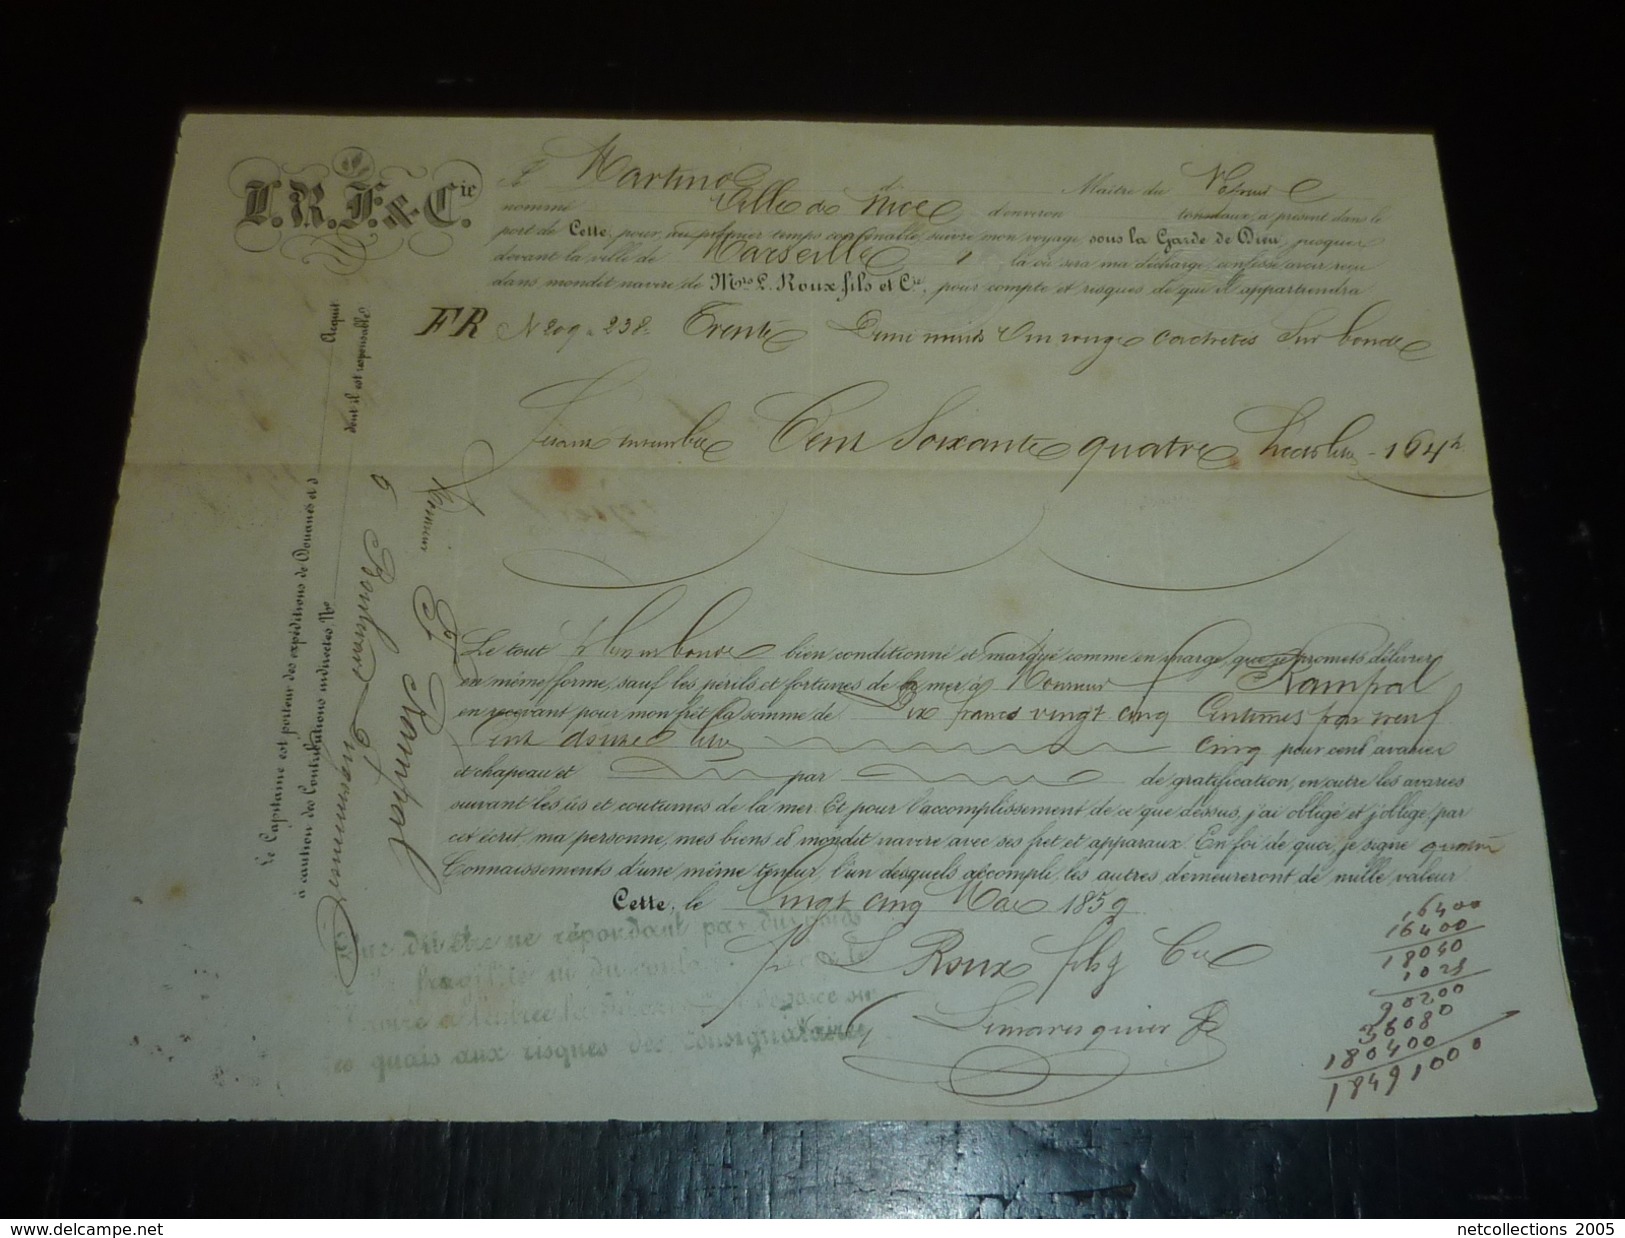 L. R. F. & Cie
Martino Maître du Vapeur
nommé Ville de Nice d'environ tonneaux, à présent dans le
port de Cette, pour, au premier temps convenable, suivre mon voyage, sous la Garde de Dieu, jusques
devant la ville de Marseille là où sera ma décharge, confesse avoir reçu
dans mondit navire, de Mrs L. Roux fils et Cie, pour compte et risques de qui il appartiendra
FR N 209 a 238 Trente Demi muids Vin rouge cachetés Sur bonde
Jeaugeant ensemble Cent Soixante quatre hectolitres - 164 h
Le tout bien conditionné et marqué comme en marge, que je promets délivrer
en même forme, sauf les périls et fortunes de la mer, à Monsieur Rampal
en recevant pour mon fret la somme de Dix francs vingt cinq Centimes par neuf
Cent douze litres cinq pour cent avaries
et chapeau et par de gratification, en outre les avaries
suivant les us et coutumes de la mer. Et pour l'accomplissement de ce que dessus, j'ai obligé et j'oblige, par
cet écrit, ma personne, mes biens & mondit navire avec ses fret et apparaux. En foi de quoi, je signe quatre
Connaissements d'une même teneur, l'un desquels accompli, les autres demeureront de nulle valeur.
Cette, le Vingt cinq Mai 1859
L Roux fils & Cie
que dit être ne répondant pas du poids
fragilité ni du
quais aux risques des Consignataires
Le Capitaine est porteur des expéditions de Douanes et
à caution des Contributions indirectes No Acquit
dont il est responsable
Monsieur
Rampal
16400
16400
18040
1025
90200
36080
180400
18491000
netcollections 2005